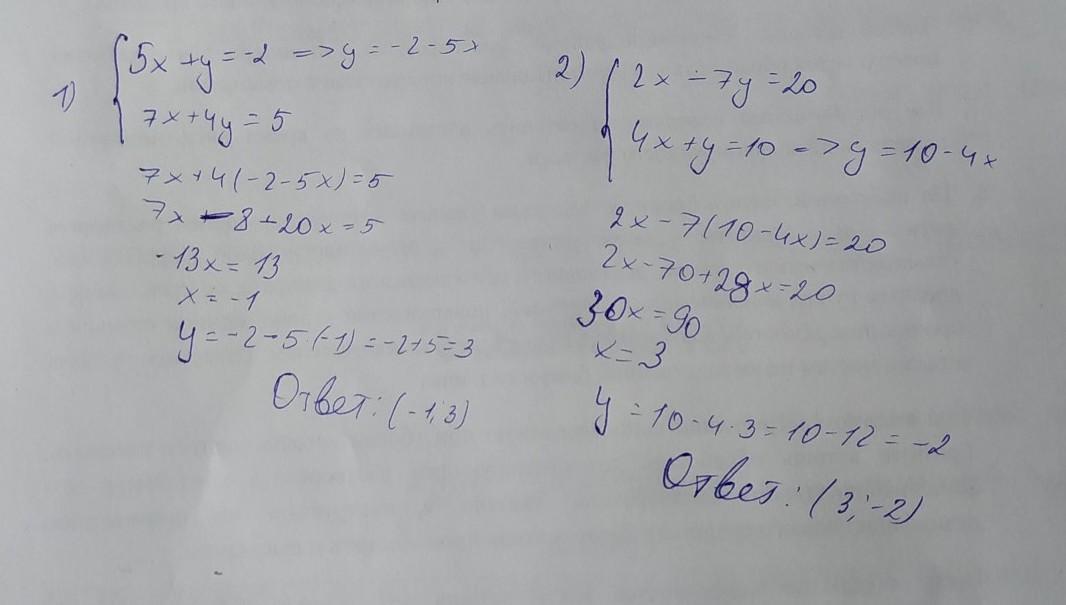 1) 5x + y = -2 => y = -2 - 5x
7x + 4y = 5
7x + 4(-2 - 5x) = 5
7x - 8 + 20x = 5
-13x = 13
x = -1
y = -2 - 5·(-1) = -2 + 5 = 3
Ответ: (-1; 3)
2) 2x - 7y = 20
4x + y = 10 => y = 10 - 4x
2x - 7(10 - 4x) = 20
2x - 70 + 28x = 20
30x = 90
x = 3
y = 10 - 4·3 = 10 - 12 = -2
Ответ: (3; -2)